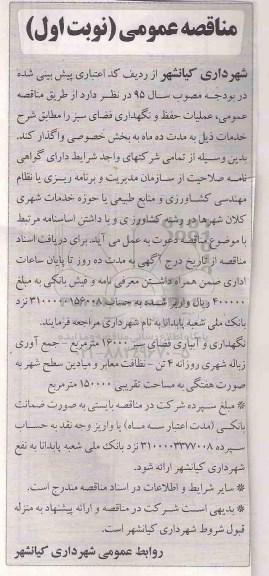 مناقصه عمومی (نوبت اول)
شهرداری کیانشهر از ردیف کد اعتباری پیش بینی شده
در بودجه مصوب سال ۹۵ در نظر دارد از طریق مناقصه
عمومی، عملیات حفظ و نگهداری فضای سبز را مطابق شرح
خدمات ذیل به مدت ده ماه به بخش خصوصی واگذار کند.
بدین وسیله از تمامی شرکتهای واجد شرایط دارای گواهی
نامه صلاحیت از سازمان مدیریت و برنامه ریزی یا نظام
مهندسی کشاورزی و منابع طبیعی یا حوزه خدمات شهری
کلان شهرها در رشته کشاورزی و یا داشتن اساسنامه مرتبط
با موضوع مناقصه دعوت به عمل می آید. برای دریافت اسناد
مناقصه از تاریخ درج آگهی به مدت ده روز تا پایان ساعات
اداری ضمن همراه داشتن معرفی نامه و فیش بانکی به مبلغ
۴۰۰۰۰۰ ریال واریز شده به حساب نزد
بانک ملی شعبه پابدانا به نام شهرداری مراجعه فرمایند.
نگهداری و آبیاری فضای سبز ۱۶۰۰۰ مترمربع - جمع آوری
زباله شهری روزانه ۴ تن - نظافت معابر و میادین سطح شهر به
صورت هفتگی به مساحت تقریبی ۱۵۰۰۰۰ مترمربع
* مبلغ سپرده شرکت در مناقصه بایستی به صورت ضمانت
بانکی (مدت اعتبار سه ماه) یا واریز وجه نقد به حساب
سپرده ۳۱۰۰۰۰۳۳۷۷۰۰۸ نزد بانک ملی شعبه پابدانا به نفع
شهرداری کیانشهر ارائه شود.
* سایر شرایط و اطلاعات در اسناد مناقصه مندرج است.
* بدیهی است شرکت در مناقصه و ارائه پیشنهاد به منزله
قبول شروط شهرداری کیانشهر است.
روابط عمومی شهرداری کیانشهر